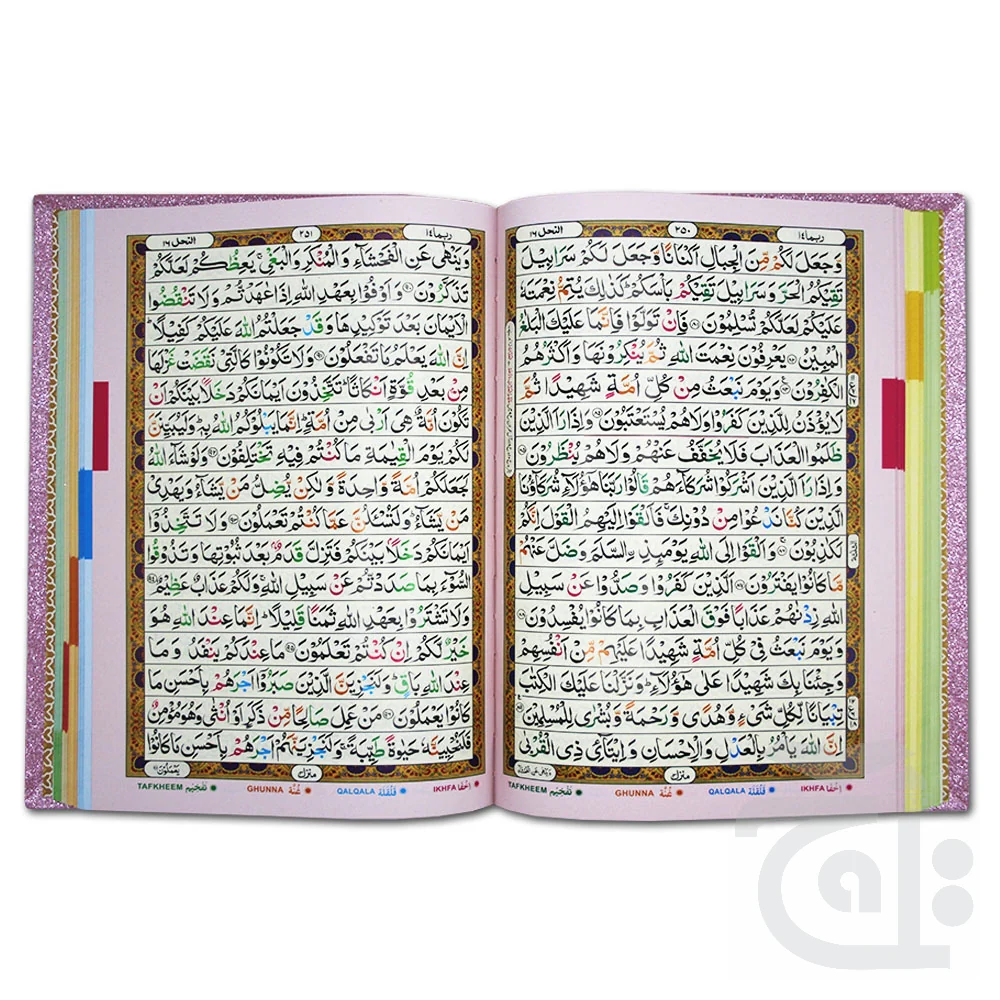 ربما ١٤
٢٥٠
النحل ١٦
وَّجَعَلَ لَكُمْ مِّنَ الْجِبَالِ اَكْنَانًا وَّجَعَلَ لَكُمْ سَرَابِيْلَ
تَقِيْكُمُ الْحَرَّ وَسَرَابِيْلَ تَقِيْكُمْ بَاْسَكُمْ ؕ كَذٰلِكَ يُتِمُّ نِعْمَتَهٗ
عَلَيْكُمْ لَعَلَّكُمْ تُسْلِمُوْنَ ﴿۸۱﴾ فَاِنْ تَوَلَّوْا فَاِنَّمَا عَلَيْكَ الْبَلٰغُ
الْمُبِيْنُ ﴿۸۲﴾ يَعْرِفُوْنَ نِعْمَتَ اللّٰهِ ثُمَّ يُنْكِرُوْنَهَا وَاَكْثَرُهُمُ
الْكٰفِرُوْنَ ﴿۸۳﴾ وَيَوْمَ نَبْعَثُ مِنْ كُلِّ اُمَّةٍ شَهِيْدًا ثُمَّ
لَا يُؤْذَنُ لِلَّذِيْنَ كَفَرُوْا وَلَا هُمْ يُسْتَعْتَبُوْنَ ﴿۸۴﴾ وَاِذَا رَاَ الَّذِيْنَ
ظَلَمُوا الْعَذَابَ فَلَا يُخَفَّفُ عَنْهُمْ وَلَا هُمْ يُنْظَرُوْنَ ﴿۸۵﴾
وَاِذَا رَاَ الَّذِيْنَ اَشْرَكُوْا شُرَكَآءَهُمْ قَالُوْا رَبَّنَا هٰٓؤُلَآءِ شُرَكَآؤُنَا
الَّذِيْنَ كُنَّا نَدْعُوْا مِنْ دُوْنِكَ ۚ فَاَلْقَوْا اِلَيْهِمُ الْقَوْلَ اِنَّكُمْ
لَكٰذِبُوْنَ ﴿۸۶﴾ وَاَلْقَوْا اِلَى اللّٰهِ يَوْمَئِذِ ۣالسَّلَمَ وَضَلَّ عَنْهُمْ
مَّا كَانُوْا يَفْتَرُوْنَ ﴿۸۷﴾ اَلَّذِيْنَ كَفَرُوْا وَصَدُّوْا عَنْ سَبِيْلِ
اللّٰهِ زِدْنٰهُمْ عَذَابًا فَوْقَ الْعَذَابِ بِمَا كَانُوْا يُفْسِدُوْنَ ﴿۸۸﴾
وَيَوْمَ نَبْعَثُ فِيْ كُلِّ اُمَّةٍ شَهِيْدًا عَلَيْهِمْ مِّنْ اَنْفُسِهِمْ
وَجِئْنَا بِكَ شَهِيْدًا عَلٰى هٰٓؤُلَآءِ ؕ وَنَزَّلْنَا عَلَيْكَ الْكِتٰبَ
تِبْيَانًا لِّكُلِّ شَيْءٍ وَّهُدًى وَّرَحْمَةً وَّبُشْرٰى لِلْمُسْلِمِيْنَ ﴿۸۹﴾
اِنَّ اللّٰهَ يَاْمُرُ بِالْعَدْلِ وَالْاِحْسَانِ وَاِيْتَآئِ ذِي الْقُرْبٰى
منزل
اِخْفَا IKHFA
قَلْقَلَة QALQALA
غُنَّة GHUNNA
تَفْخِيْم TAFKHEEM
ربما ١٤
٢٥١
النحل ١٦
وَيَنْهٰى عَنِ الْفَحْشَآءِ وَالْمُنْكَرِ وَالْبَغْيِ ۚ يَعِظُكُمْ لَعَلَّكُمْ
تَذَكَّرُوْنَ ﴿۹۰﴾ وَاَوْفُوْا بِعَهْدِ اللّٰهِ اِذَا عٰهَدْتُّمْ وَلَا تَنْقُضُوا
الْاَيْمَانَ بَعْدَ تَوْكِيْدِهَا وَقَدْ جَعَلْتُمُ اللّٰهَ عَلَيْكُمْ كَفِيْلًا ؕ
اِنَّ اللّٰهَ يَعْلَمُ مَا تَفْعَلُوْنَ ﴿۹۱﴾ وَلَا تَكُوْنُوْا كَالَّتِيْ نَقَضَتْ غَزْلَهَا
مِنْ بَعْدِ قُوَّةٍ اَنْكَاثًا ؕ تَتَّخِذُوْنَ اَيْمَانَكُمْ دَخَلًۢا بَيْنَكُمْ اَنْ
تَكُوْنَ اُمَّةٌ هِيَ اَرْبٰى مِنْ اُمَّةٍ ؕ اِنَّمَا يَبْلُوْكُمُ اللّٰهُ بِهٖ ؕ وَلَيُبَيِّنَنَّ
لَكُمْ يَوْمَ الْقِيٰمَةِ مَا كُنْتُمْ فِيْهِ تَخْتَلِفُوْنَ ﴿۹۲﴾ وَلَوْ شَآءَ اللّٰهُ
لَجَعَلَكُمْ اُمَّةً وَّاحِدَةً وَّلٰكِنْ يُّضِلُّ مَنْ يَّشَآءُ وَيَهْدِيْ
مَنْ يَّشَآءُ ؕ وَلَتُسْـَٔلُنَّ عَمَّا كُنْتُمْ تَعْمَلُوْنَ ﴿۹۳﴾ وَلَا تَتَّخِذُوْٓا
اَيْمَانَكُمْ دَخَلًۢا بَيْنَكُمْ فَتَزِلَّ قَدَمٌۢ بَعْدَ ثُبُوْتِهَا وَتَذُوْقُوا
السُّوْٓءَ بِمَا صَدَدْتُّمْ عَنْ سَبِيْلِ اللّٰهِ ۚ وَلَكُمْ عَذَابٌ عَظِيْمٌ ﴿۹۴﴾
وَلَا تَشْتَرُوْا بِعَهْدِ اللّٰهِ ثَمَنًا قَلِيْلًا ؕ اِنَّمَا عِنْدَ اللّٰهِ هُوَ
خَيْرٌ لَّكُمْ اِنْ كُنْتُمْ تَعْلَمُوْنَ ﴿۹۵﴾ مَا عِنْدَكُمْ يَنْفَدُ وَمَا
عِنْدَ اللّٰهِ بَاقٍ ؕ وَلَنَجْزِيَنَّ الَّذِيْنَ صَبَرُوْٓا اَجْرَهُمْ بِاَحْسَنِ مَا
كَانُوْا يَعْمَلُوْنَ ﴿۹۶﴾ مَنْ عَمِلَ صَالِحًا مِّنْ ذَكَرٍ اَوْ اُنْثٰى وَهُوَ مُؤْمِنٌ
فَلَنُحْيِيَنَّهٗ حَيٰوةً طَيِّبَةً ۚ وَلَنَجْزِيَنَّهُمْ اَجْرَهُمْ بِاَحْسَنِ مَا كَانُوْا
يَعْمَلُوْنَ
منزل
اِخْفَا IKHFA
قَلْقَلَة QALQALA
غُنَّة GHUNNA
تَفْخِيْم TAFKHEEM